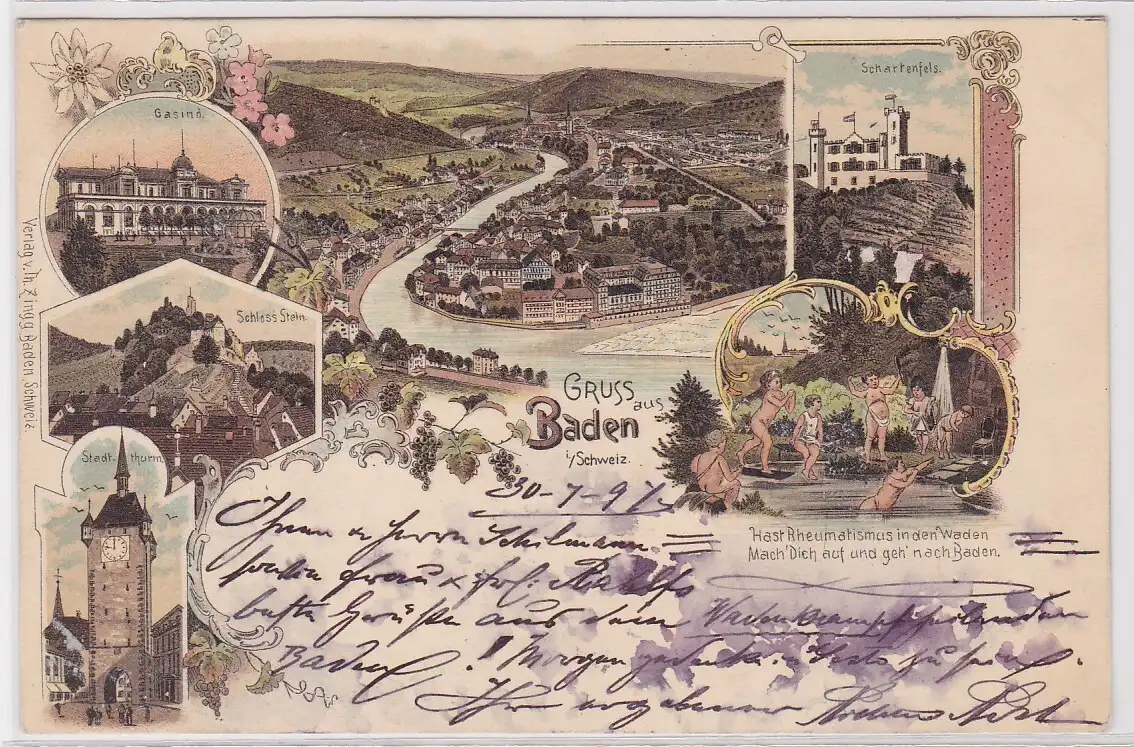 Casino.
Scharfenfels.
Schloss Stein.
Stadt-thurm.
Verlag v. Th. Zingg, Baden, Schweiz
GRUSS
aus
Baden
i/Schweiz.
Hast Rheumatismus in den Waden
Mach' Dich auf und geh' nach Baden.
30-7-97
Ihnen u Herrn Schilmann
sowie Frau & Frl:
beste Grüße aus dem
Baden! Morgen zu sein.
Ihr ergebener